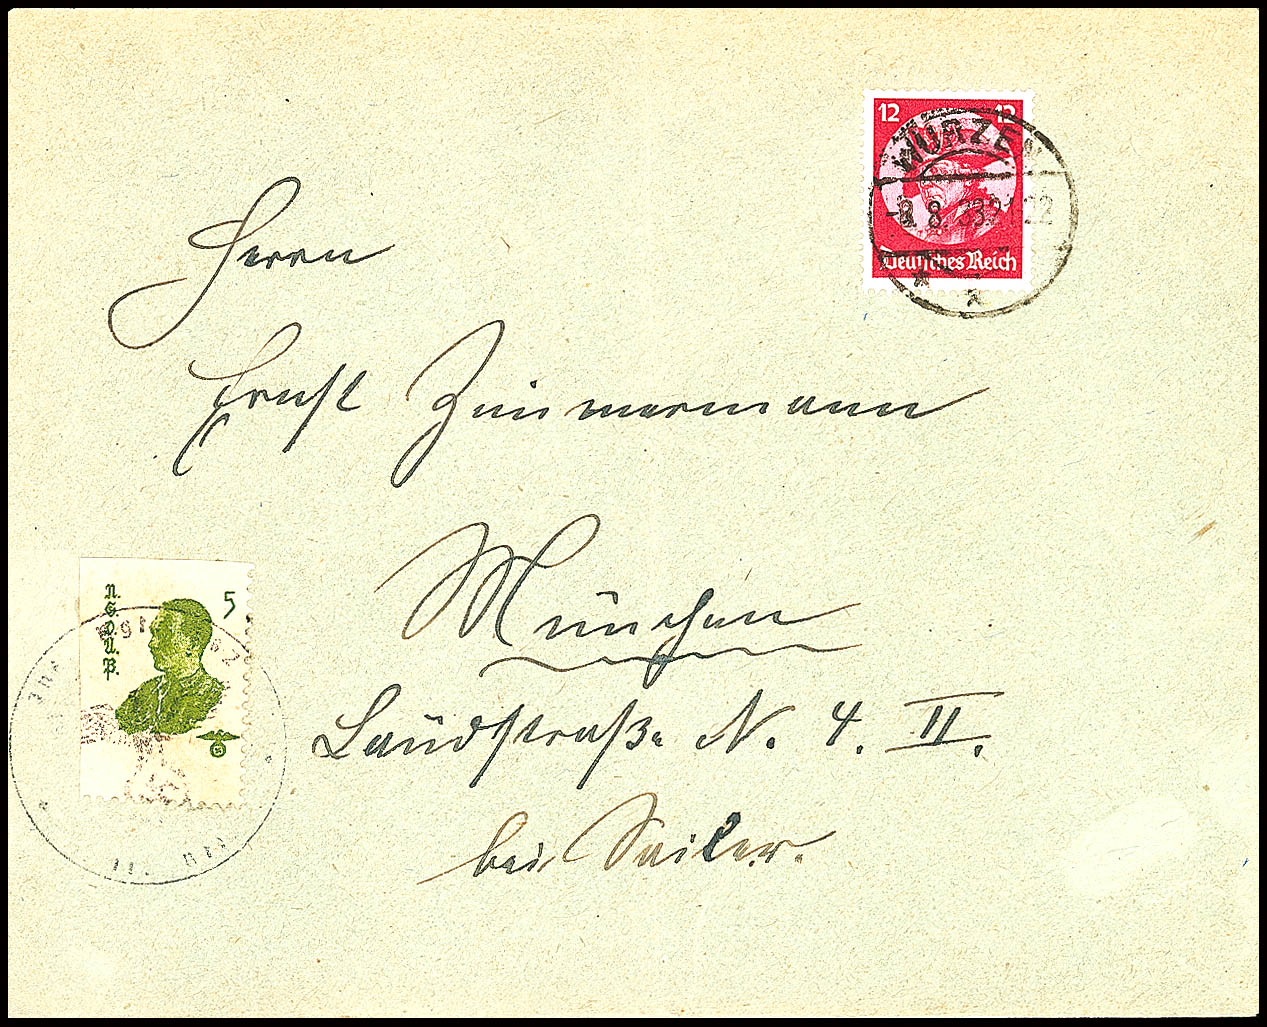 12 12
WURZEN
8.33.21-22
Deutsches Reich
Herrn
Ernst Zimmermann
München
Landstraße N. 4. II.
bei Seiler.
N.S.D.A.P.
5